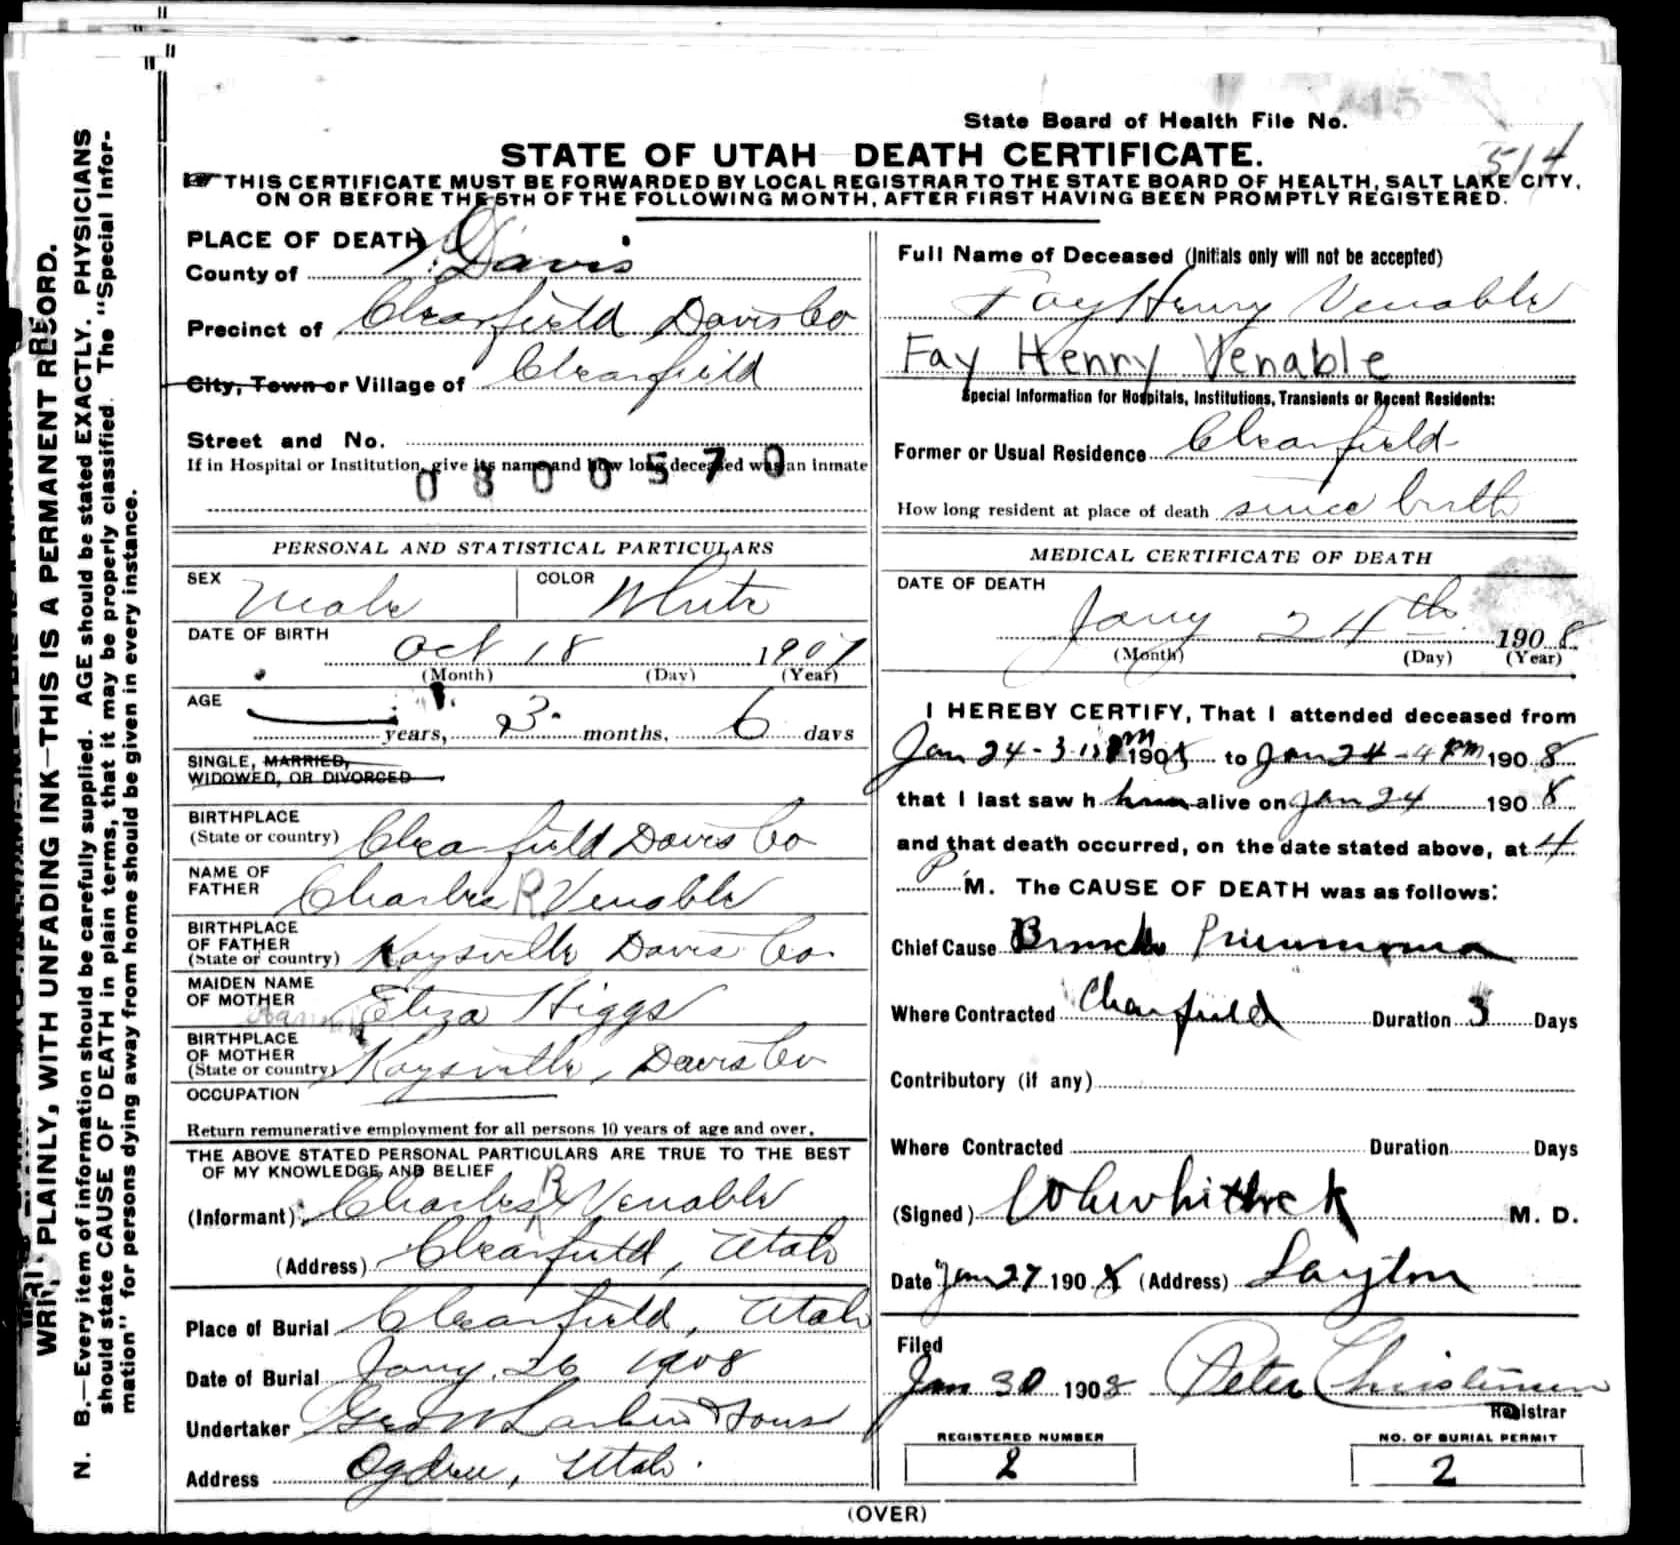 State Board of Health File No.
514
STATE OF UTAH DEATH CERTIFICATE.
THIS CERTIFICATE MUST BE FORWARDED BY LOCAL REGISTRAR TO THE STATE BOARD OF HEALTH, SALT LAKE CITY,
ON OR BEFORE THE 5TH OF THE FOLLOWING MONTH, AFTER FIRST HAVING BEEN PROMPTLY REGISTERED.
PLACE OF DEATH
County of Davis
Precinct of Clearfield Davis Co
City, Town or Village of Clearfield
Street and No.
If in Hospital or Institution, give its name and how long deceased was an inmate
0800570
PERSONAL AND STATISTICAL PARTICULARS
SEX Male COLOR White
DATE OF BIRTH
Oct 18 1907
(Month) (Day) (Year)
AGE
years, 3 months, 6 days
SINGLE, MARRIED,
WIDOWED, OR DIVORCED
BIRTHPLACE
(State or country) Clearfield Davis Co
NAME OF
FATHER Charles R Venable
BIRTHPLACE
OF FATHER
(State or country) Kaysville Davis Co.
MAIDEN NAME
OF MOTHER Eliza Higgs
BIRTHPLACE
OF MOTHER
(State or country) Kaysville, Davis Co
OCCUPATION
Return remunerative employment for all persons 10 years of age and over.
THE ABOVE STATED PERSONAL PARTICULARS ARE TRUE TO THE BEST
OF MY KNOWLEDGE AND BELIEF
(Informant) Charles R Venable
(Address) Clearfield, Utah
Place of Burial Clearfield, Utah
Date of Burial Jany. 26 1908
Undertaker Geo W Larkin & Sons
Address Ogden, Utah.
Full Name of Deceased (Initials only will not be accepted)
Fay Henry Venable
Fay Henry Venable
Special Information for Hospitals, Institutions, Transients or Recent Residents:
Former or Usual Residence Clearfield
How long resident at place of death since birth
MEDICAL CERTIFICATE OF DEATH
DATE OF DEATH
Jany 24th 1908
(Month) (Day) (Year)
I HEREBY CERTIFY, That I attended deceased from
Jan 24 - 3 PM 1908 to Jan 24 - 4 PM 1908
that I last saw h him alive on Jan 24 1908
and that death occurred, on the date stated above, at 4
P M. The CAUSE OF DEATH was as follows:
Chief Cause Broncho Pneumonia
Where Contracted Clearfield Duration 3 Days
Contributory (if any)
Where Contracted Duration Days
(Signed) Whitlock M. D.
Date Jan 27 1908 (Address) Layton
Filed
Jan 30 1908 Peter Christensen
Registrar
REGISTERED NUMBER
2
NO. OF BURIAL PERMIT
2
(OVER)
WRITE PLAINLY, WITH UNFADING INK—THIS IS A PERMANENT RECORD.
N. B.—Every item of information should be carefully supplied. AGE should be stated EXACTLY. PHYSICIANS
should state CAUSE OF DEATH in plain terms, that it may be properly classified. The "Special Infor-
mation" for persons dying away from home should be given in every instance.